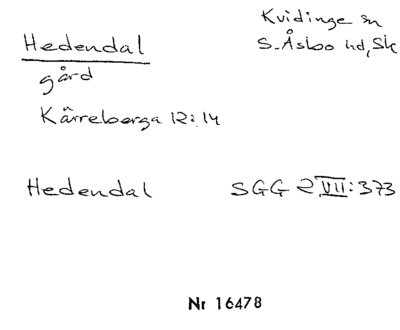 Hedendal
Kvidinge sn
S. Åsbo hd, Sk
gård
Kärreberga 12:14
Hedendal
SGG 2 VII:373
Nr 16478